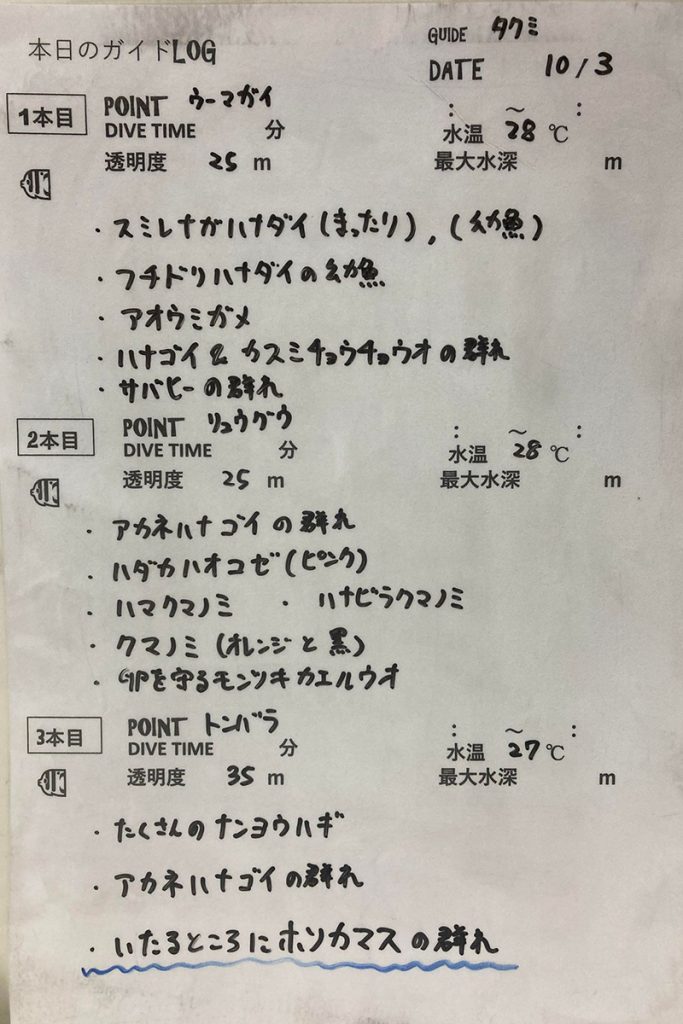 本日のガイドLOG
GUIDE タクミ
DATE 10/3
1本目
POINT ウーマガイ
: ～ :
DIVE TIME 分
水温 28 ℃
透明度 25 m
最大水深 m
・スミレナガハナダイ(まったり),(幼魚)
・フチドリハナダイの幼魚
・アオウミガメ
・ハナゴイ & カスミチョウチョウオの群れ
・サバヒーの群れ
2本目
POINT リュウグウ
: ～ :
DIVE TIME 分
水温 28 ℃
透明度 25 m
最大水深 m
・アカネハナゴイの群れ
・ハダカハオコゼ(ピンク)
・ハマクマノミ ・ハナビラクマノミ
・クマノミ(オレンジと黒)
・卵を守るモンツキカエルウオ
3本目
POINT トンバラ
: ～ :
DIVE TIME 分
水温 27 ℃
透明度 35 m
最大水深 m
・たくさんのナンヨウハギ
・アカネハナゴイの群れ
・いたるところにホソカマスの群れ